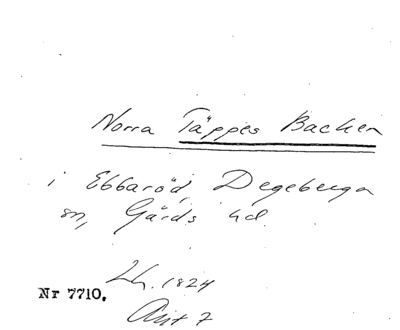 Norra Täppes Backen
i Ebbaröd, Degeberga
sn, Gärds hd.
Lh. 1824
Nr 7710.
Avt 7